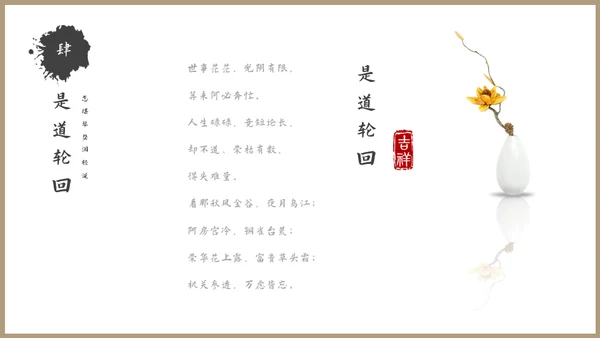 肆
是道轮回
世事茫茫、光阴有限,
算来何必奔忙。
人生碌碌、竞短论长,
却不道、荣枯有数,
得失难量。
看那秋风金谷、夜月乌江;
阿房宫冷、铜雀台荒;
荣华花上露、富贵草头霜;
机关参透、万虑皆忘。
是道轮回
吉祥